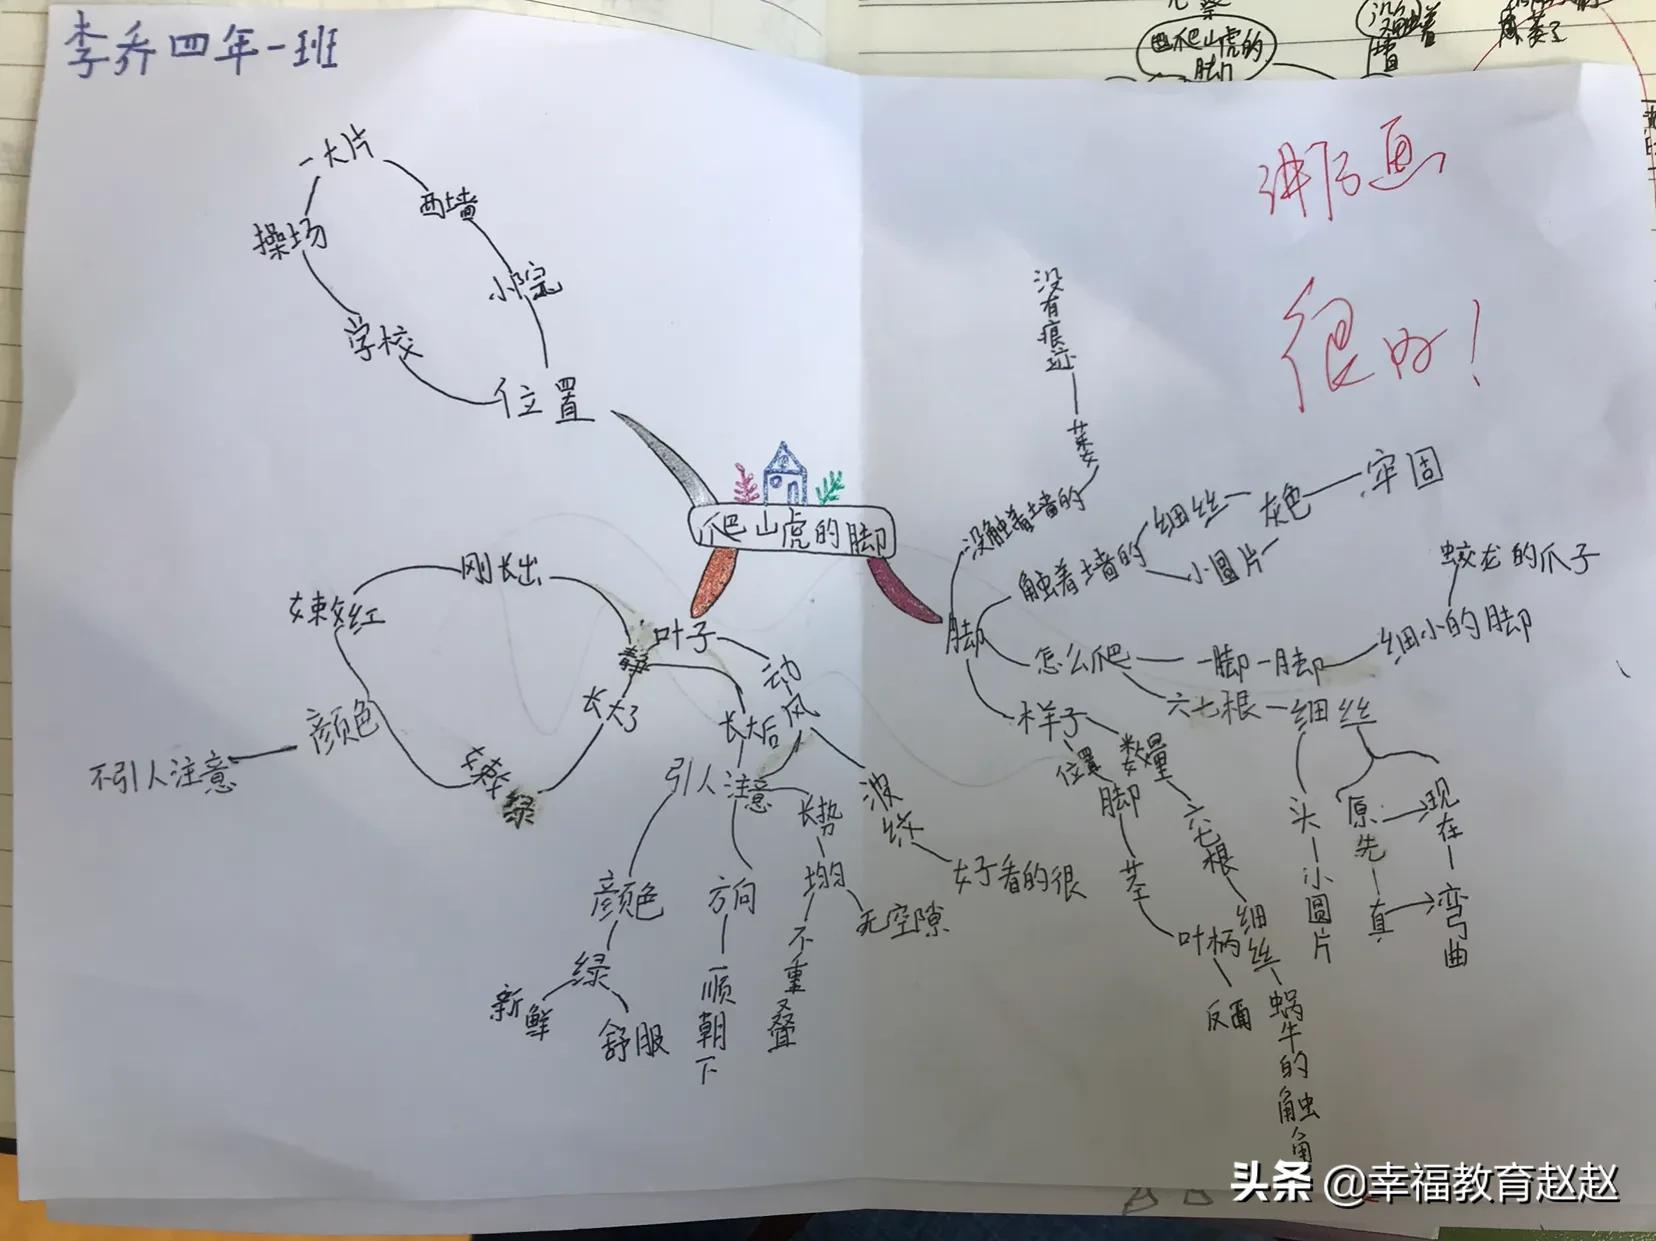 李乔四年一班
爬山虎的
脚
一大片
西墙
操场
小院
学校
位置
讲后画
很好!
爬山虎的脚
没有痕迹
萎
没触着墙的
触着墙的
细丝
灰色
牢固
小圆片
脚
怎么爬
一脚一脚
细小的脚
蛟龙的爪子
六七根
细丝
头
小圆片
原先
现在
直
弯曲
样子
位置
脚
茎
叶柄
反面
数量
六七根
细丝
蜗牛的触角
叶子
静
刚长出
嫩红
颜色
不引人注意
嫩绿
长大了
动
风
波纹
好看的很
长大后
引人注意
颜色
绿
新鲜
舒服
方向
一顺朝下
长势
均匀
不重叠
无空隙
头条 @幸福教育赵赵